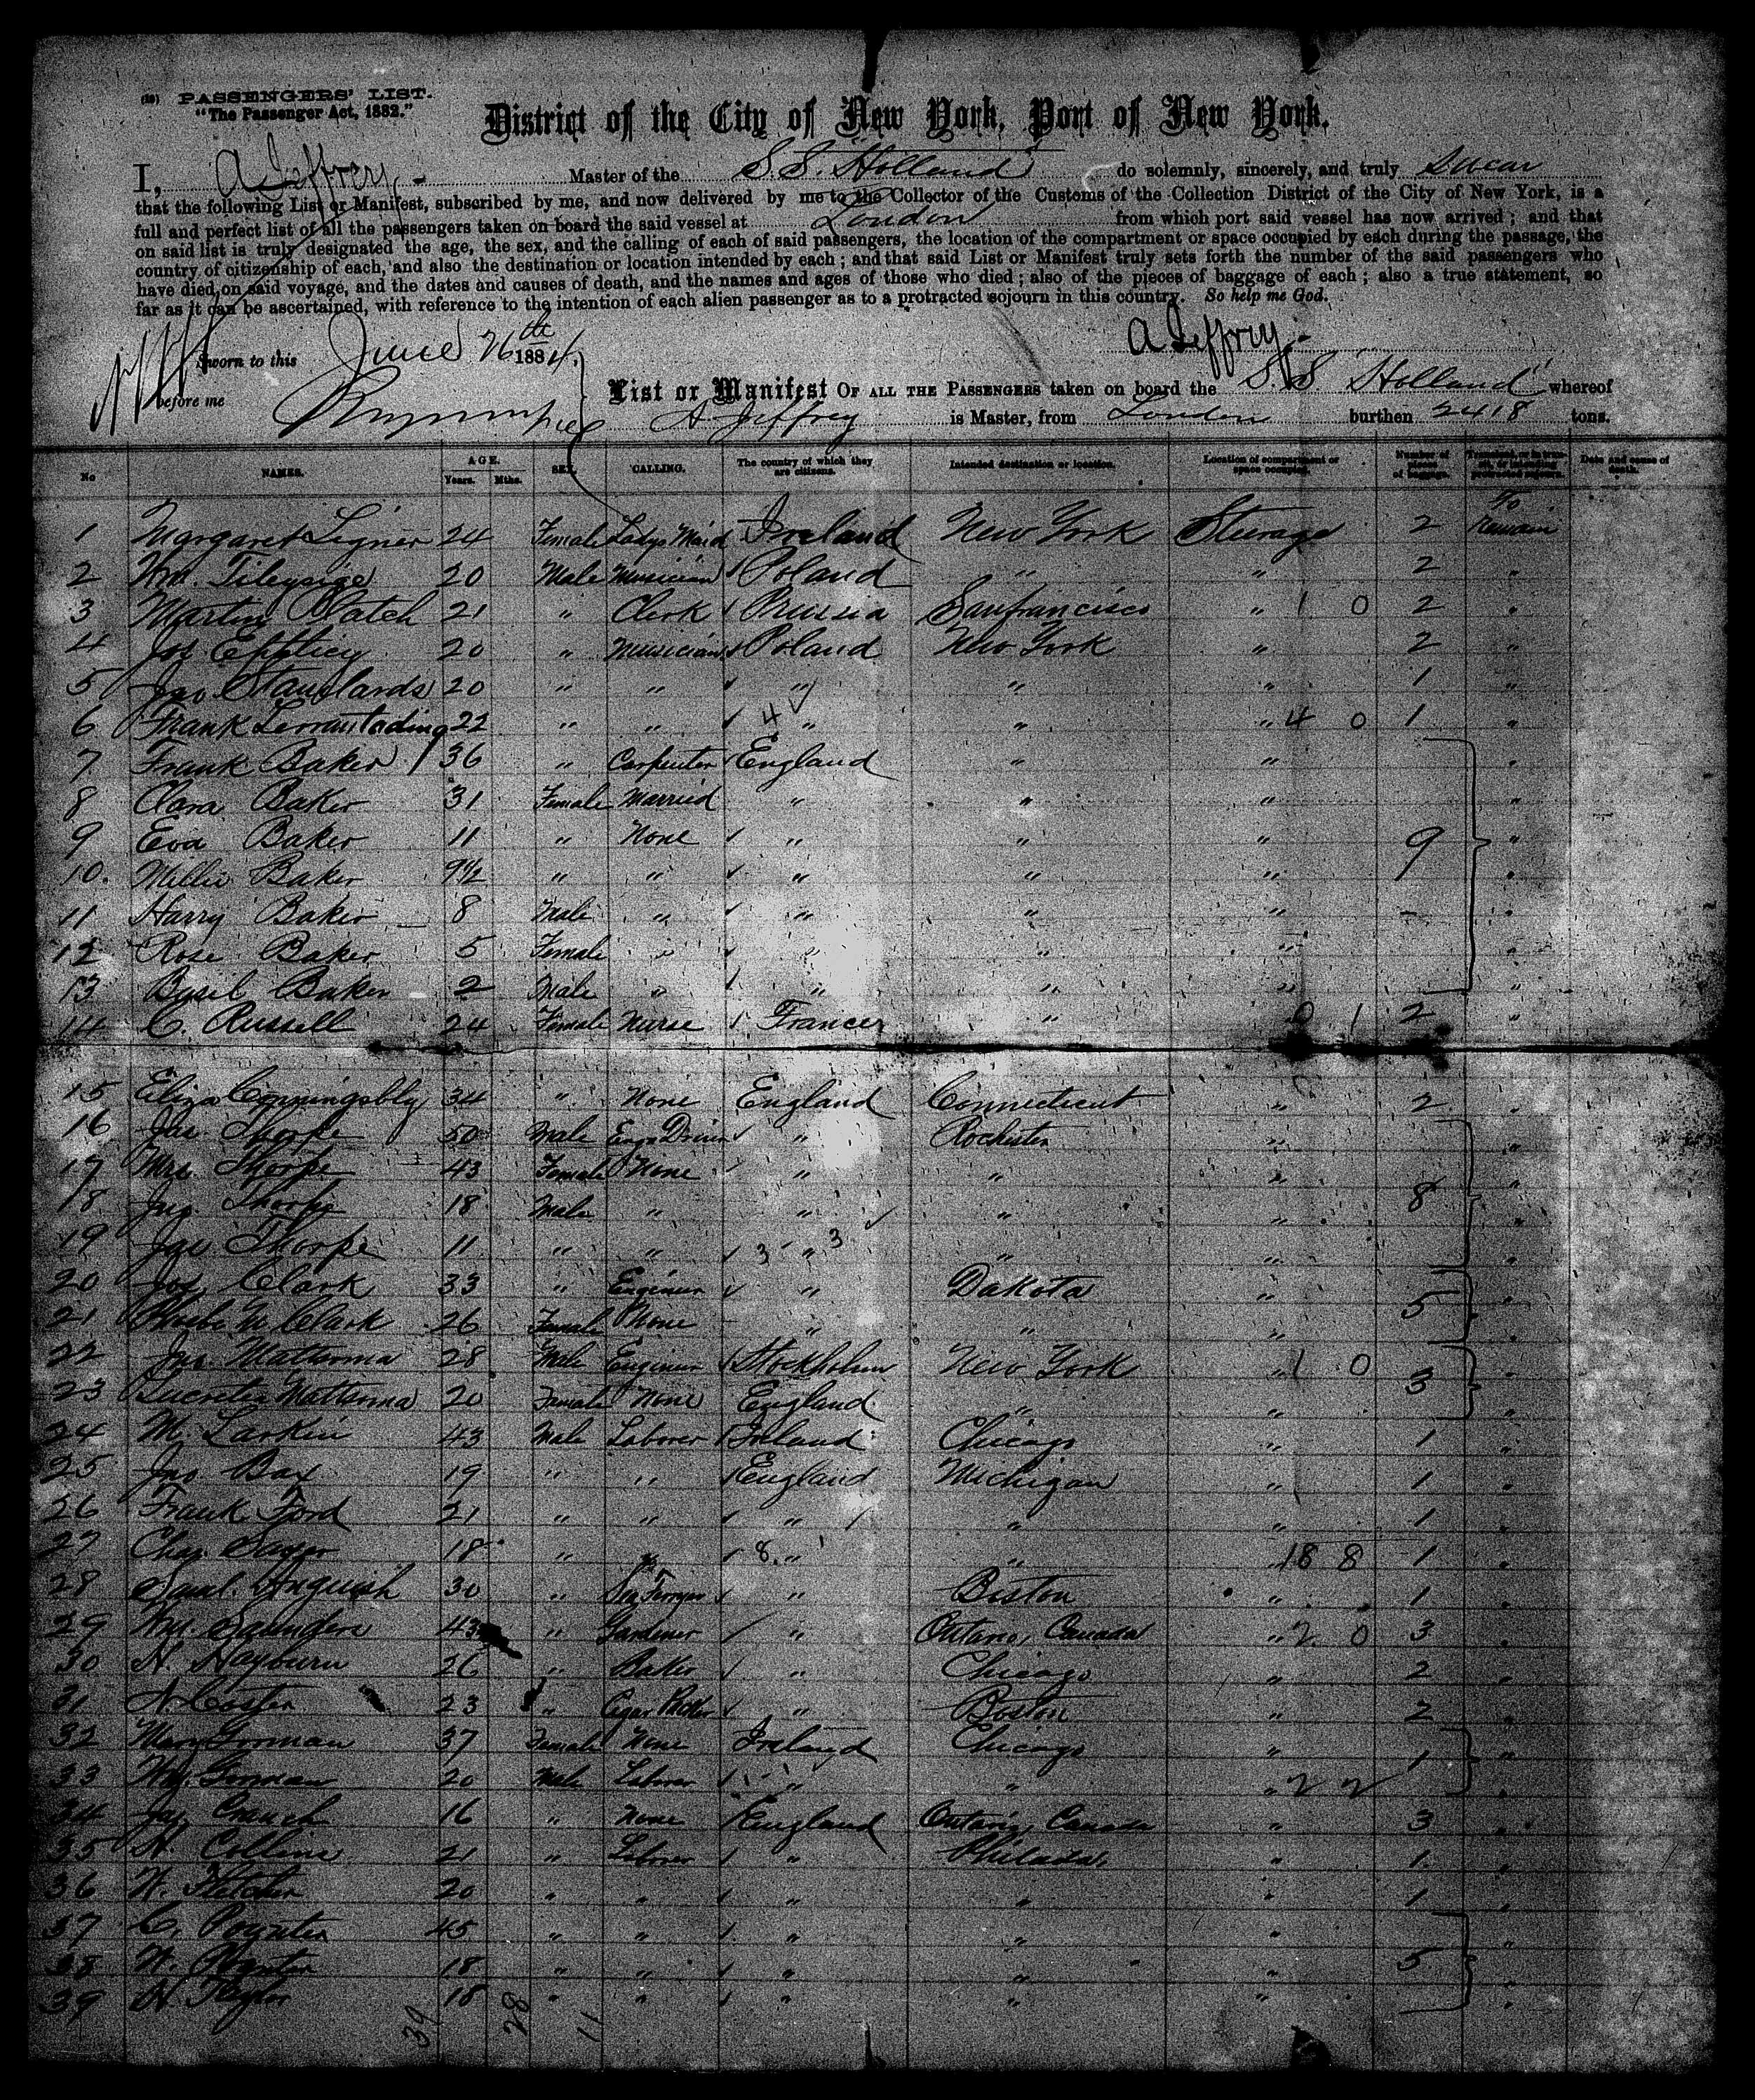 (18) PASSENGERS' LIST.
"The Passenger Act, 1882."
District of the City of New York, Port of New York.
I, A Jeffrey, Master of the S.S. "Holland" do solemnly, sincerely, and truly swear
that the following List or Manifest, subscribed by me, and now delivered by me to the Collector of the Customs of the Collection District of the City of New York, is a
full and perfect list of all the passengers taken on board the said vessel at London from which port said vessel has now arrived; and that
on said list is truly designated the age, the sex, and the calling of each of said passengers, the location of the compartment or space occupied by each during the passage, the
country of citizenship of each, and also the destination or location intended by each; and that said List or Manifest truly sets forth the number of the said passengers who
have died on said voyage, and the dates and causes of death, and the names and ages of those who died; also of the pieces of baggage of each; also a true statement, so
far as it can be ascertained, with reference to the intention of each alien passenger as to a protracted sojourn in this country. So help me God.
A Jeffrey
Sworn to this June 26th 1884
before me
List or Manifest OF ALL THE PASSENGERS taken on board the S.S. Holland whereof
A Jeffrey is Master, from London burthen 2418 tons.
No NAMES. AGE. Years. Mths. SEX. CALLING. The country of which they are citizens. Intended destination or location. Location of compartment or space occupied. Number of pieces of baggage. Date and cause of death.
1 Margaret Ligner 24 Female Ladys Maid Ireland New York Sterage 2 To Remain
2 Wm. 20 Male Musician Poland " " 2 "
3 Martin Blatch 21 " Clerk Prussia Sanfrancisco " 1 0 2 "
4 Jos 20 " Musician Poland New York " 2 "
5 Jno. Stauslards 20 " " " " " 1 "
6 Frank 22 " " 4 " " " 4 0 1 "
7 Frank Baker 36 " Carpenter England " " "
8 Clara Baker 31 Female Married " " " "
9 Eva Baker 11 " None " " " 9 "
10. Millie Baker 9½ " " " " " "
11 Harry Baker 8 Male " " " " "
12 Rose Baker 5 Female " " " " "
13 Basil Baker 2 Male " " " " "
14 C. Russell 24 Female Nurse France " 0 1 2 "
15 Eliza Conningsbly 34 " None England Connecticut " 2 "
16 Jas. Thorpe 50 Male Engn Driver " Rochester " "
17 Mrs. Thorpe 43 Female None " " " "
18 Jno. Thorpe 18 Male " " " " 8 "
19 Jas Thorpe 11 " " 3 " 3 " " "
20 Jos. Clark 33 " Engineer " Dakota " "
21 Phoebe M Clark 26 Female None " " " 5 "
22 Jno. Mattsoma 28 Male Engineer Stockholm New York " 1 0 "
23 Lucretia Mattsoma 20 Female None England " " 3 "
24 M. Larkin 43 Male Laborer Ireland Chicago " 1 "
25 Jno Bax 19 " " England Michigan " 1 "
26 Frank Ford 21 " " " " " 1 "
27 Chas. Sayer 18 " " 8 " " " 18 8 1 "
28 Saml. Anguish 30 " " Boston " 1 "
29 Wm. Saunders 43 " Gardener " Ontario, Canada " 2 0 3 "
30 H. Hayburn 26 " Baker " Chicago " 2 "
31 A. Coster 23 " Cigar Packer " Boston " 2 "
32 Mary Gorman 37 Female None Ireland Chicago " "
33 Wm. Gorman 20 Male Laborer " " " 2 2 1 "
34 Jas. Crouch 16 " None England Ontario, Canada " 3 "
35 H. Collins 21 " Laborer " Philada. " 1 "
36 W. Fletcher 20 " " " " " 1 "
37 C. Poynter 45 " " " " " "
38 W. Poynter 18 " " " " " 5 "
39 H. 18 " " " " " "
39 28 11